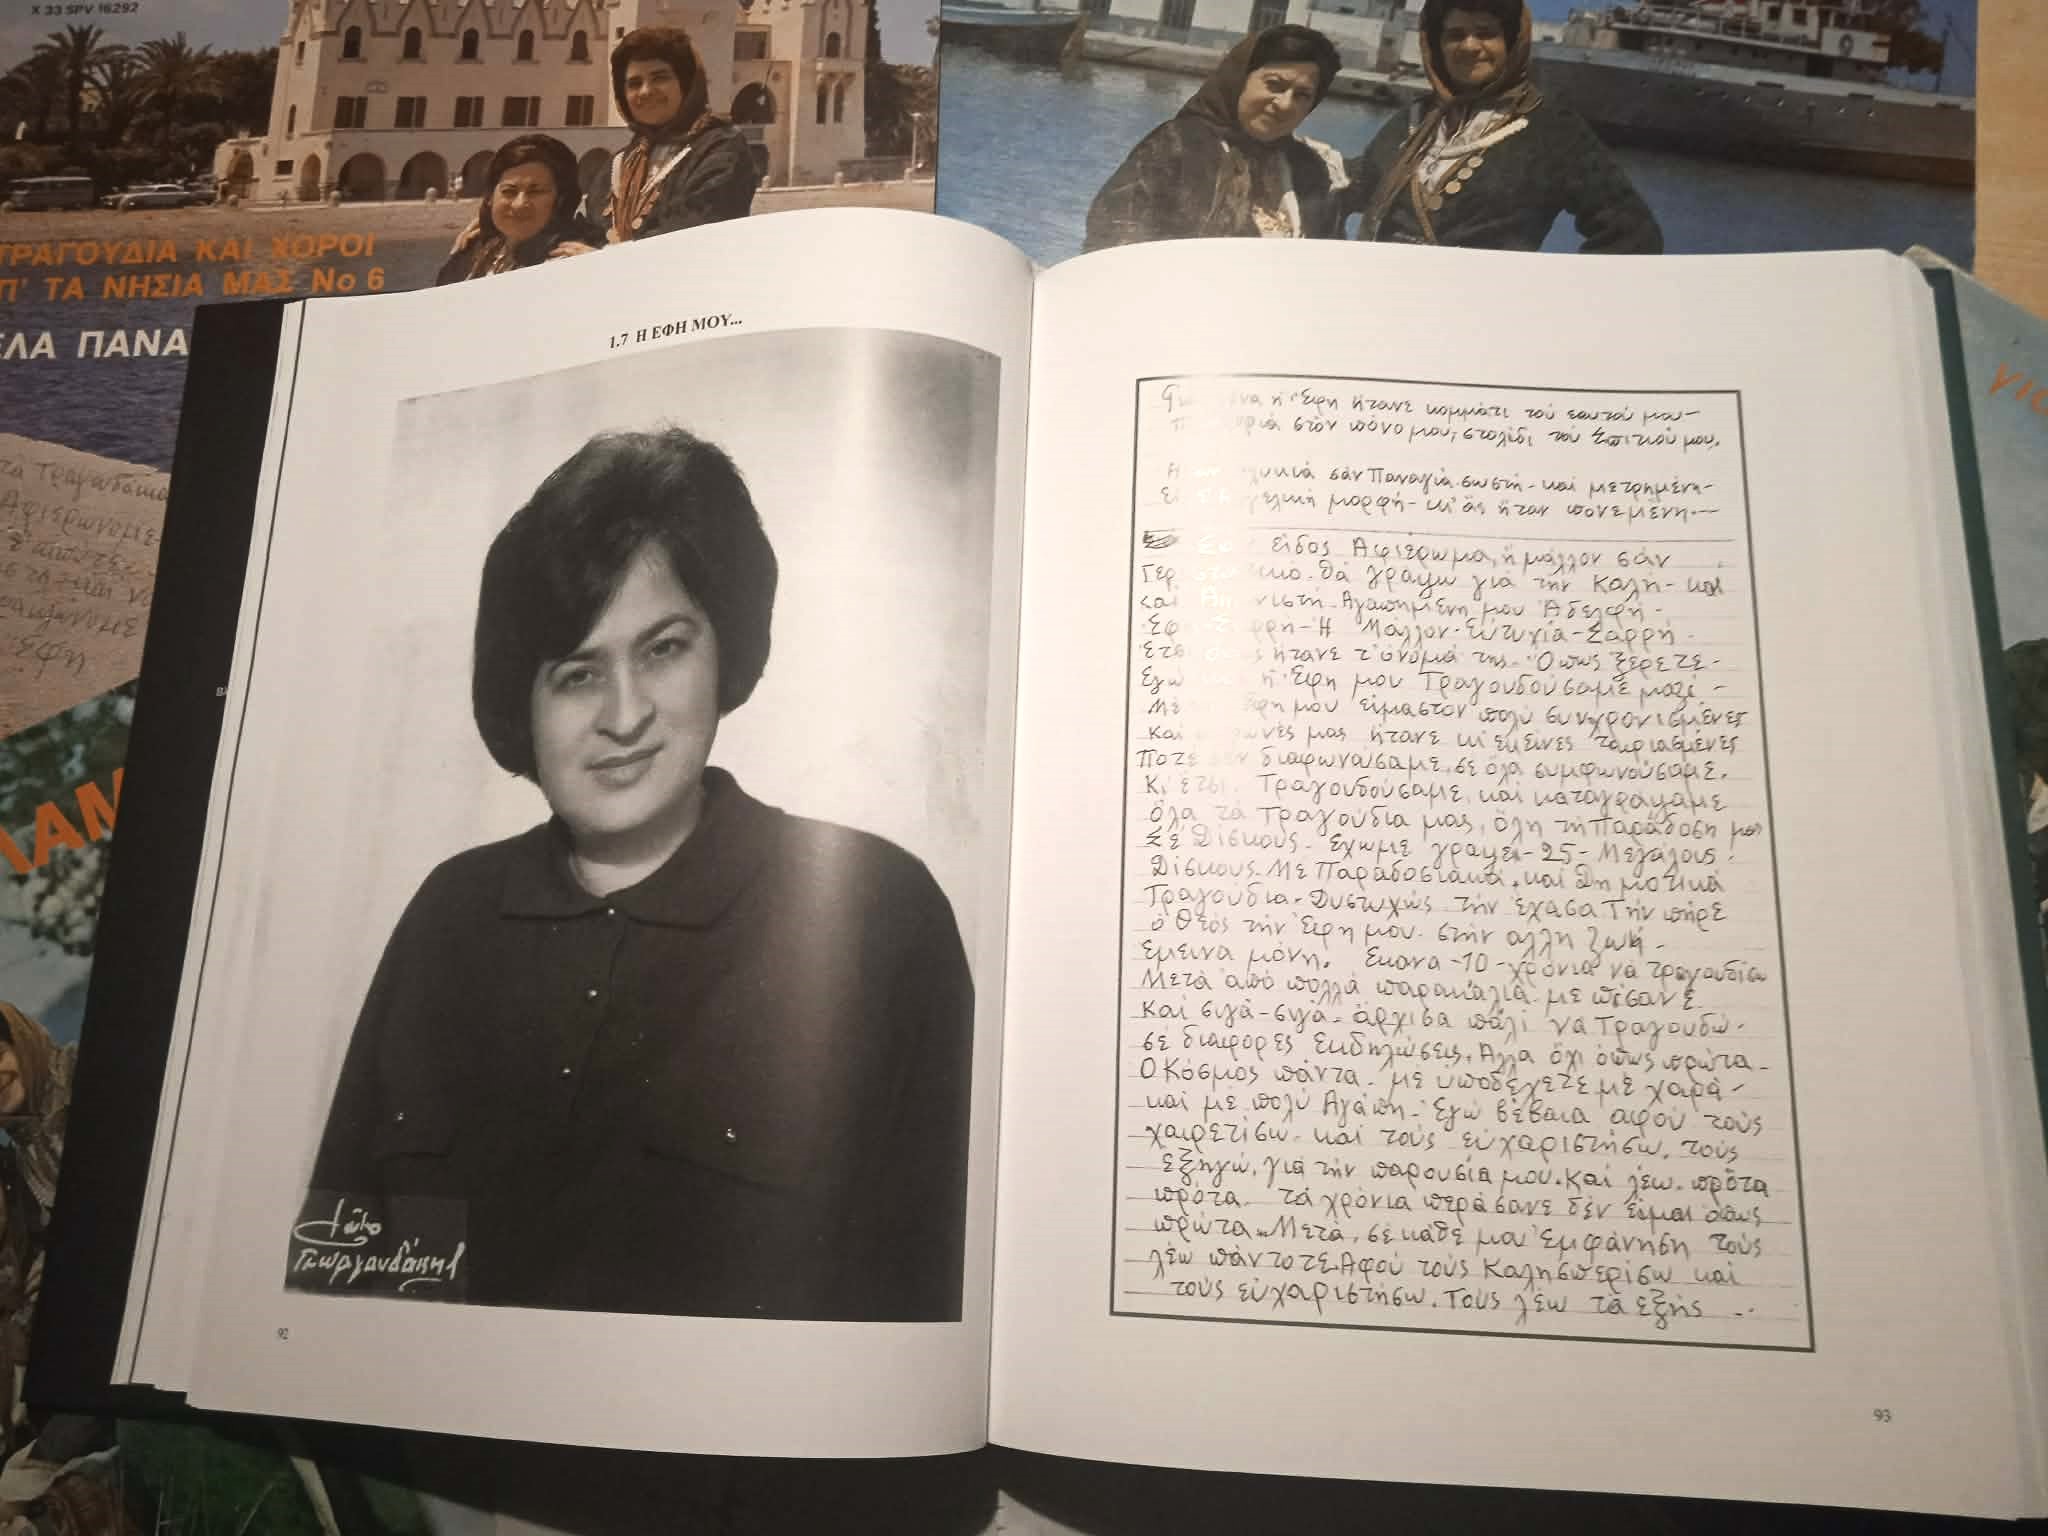 X 33 SPV 16292
ΤΡΑΓΟΥΔΙΑ ΚΑΙ ΧΟΡΟΙ
Π' ΤΑ ΝΗΣΙΑ ΜΑΣ Νο 6
ΕΛΑ ΠΑΝΑ
τα Τραγουδάκια
Αφιερώνομε
Έφη
ΛΑΜ
1.7 Η ΕΦΗ ΜΟΥ...
Φώτο
Γεωργανδάκης
92
ἡ Ἔφη ἤτανε κομμάτι τοῦ ἑαυτού μου-
στὸν πόνο μου, στολίδι τοῦ Σπιτιού μου.
σὰν Παναγιά. σωστή - καὶ μετρημένη-
μορφή - κι' ἂς ἦταν πονεμένη.-
εἶδος Αφιέρωμα, ἢ μάλλον σὰν
θὰ γράψω γιὰ τὴν Καλή - και
καὶ Αγαπημένη μου Ἀδελφή -
Ἡ Μάλλον - Εὐτυχία - Σαρρή -
ἤτανε τ' ὄνομά της. Ὅπως ξέρετε -
Ἐγώ ἡ Ἔφη μου Τραγουδούσαμε μαζί -
Με μου εἴμαστον πολὺ συνχρονισμένες
και μας ἤτανε κι' ἐκείνες ταιριασμένες
Ποτέ διαφωνούσαμε, σε ὅλα συμφωνούσαμε.
Κι ἔτσι. Τραγουδούσαμε. καὶ καταγράψαμε
ὅλα τὰ Τραγούδια μας, ὅλη τὴ Παράδοση μας
Σὲ Δίσκους. Ἔχωμε γράψει - 25 - Μεγάλους.
Δίσκους. Με Παραδοσιακά. και Δημοτικά
Τραγούδια. Δυστυχώς τὴν ἔχασα Τὴν πήρε
ὁ Θεὸς τὴν Ἔφη μου. στὴν αλλη ζωή -
Εμεινα μόνη. Εκανα - 10 - χρόνια νὰ τραγουδίσω
Μετὰ ἀπὸ πολλὰ παρακάλια. με πίσανε
Καὶ σιγὰ - σιγὰ. ἄρχισα πάλι νὰ Τραγουδώ.
σὲ διαφορες Εκδηλώσεις. Αλλα ὄχι ὅπως πρώτα -
Ο Κόσμος πάντα. μὲ ὑποδέχετε μὲ χαρά -
καὶ μὲ πολὺ Ἀγάπη. Ἐγὼ βέβαια αφοὺ τοὺς
χαιρετίσω. καὶ τοὺς εὐχαριστήσω. τοὺς
εξηγώ, γιὰ τὴν παρουσία μου. Καὶ λέω. πρώτα
πρώτα. τὰ χρόνια περάσανε δὲν εἶμαι ὅπως
πρώτα. Μετά, σὲ κάθε μου Ἐμφάνηση τοὺς
λέω πάντοτε. Αφοὺ τοὺς Καλησπερίσω καὶ
τοὺς εὐχαριστήσω. Τοὺς λέω τὰ εξῆς -.
93